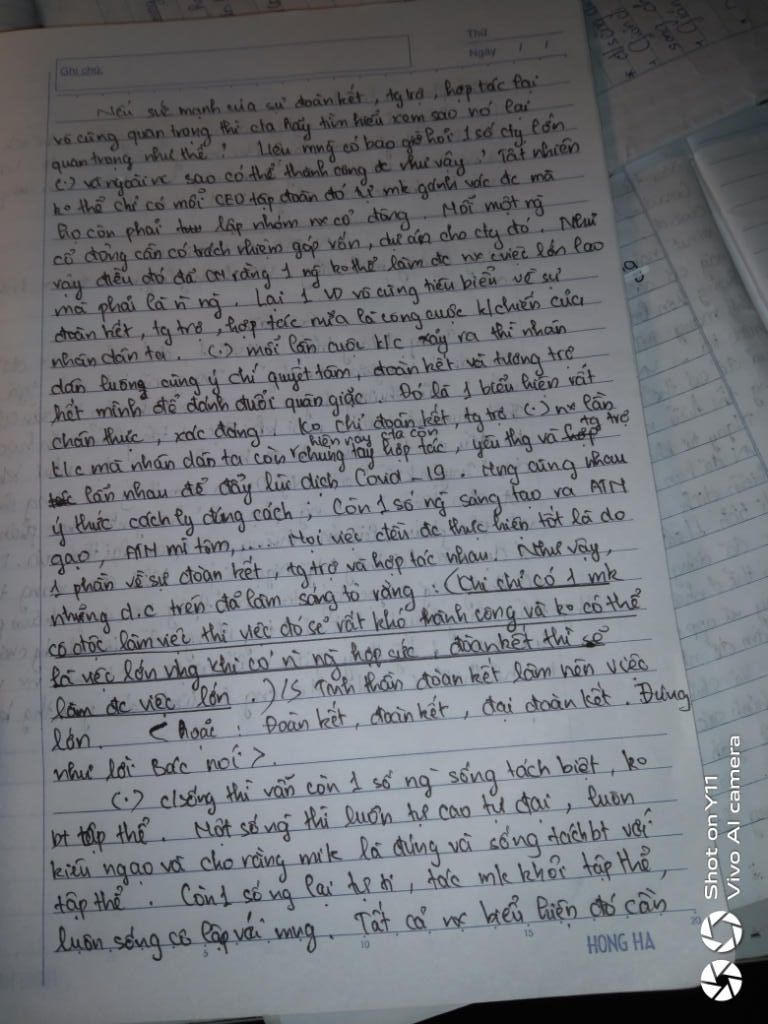 Thứ
Ngày / /
Ghi chú:
Nếu sức mạnh của sự đoàn kết, tg trợ, hợp tác lại
vô cùng quan trọng thì cta hãy tìm hiểu xem sao nó lại
quan trọng như thế? Liệu mng có bao giờ hỏi 1 số cty lớn
(.) và ngoài nc sao có thể thành công đc như vậy? Tất nhiên
ko thể chỉ có mỗi CEO tập đoàn đó tự mk gánh vác đc mà
họ còn phải lập nhóm nx cổ đông. Mỗi một ng
cổ đông cần có trách nhiệm góp vốn, dự án cho cty đó. Như
vậy điều đó đã CM rằng 1 ng ko thể làm đc nx cviệc lớn lao
mà phải là n ng. Lại 1 VD vô cùng tiêu biểu về sự
đoàn kết, tg trợ, hợp tác nữa là công cuộc k/chiến của
nhân dân ta. (.) mỗi lần cuộc k/c xảy ra thì nhân
dân luông cùng ý chí quyết tâm, đoàn kết và tương trợ
hết mình để đánh đuổi quân giặc. Đó là 1 biểu hiện rất
chân thực, xác đáng. Ko chỉ đoàn kết, tg trợ (.) nx lần
k/c mà nhân dân ta còn hiện nay cta còn chung tay hợp tác, yêu thg và tg trợ
lẫn nhau để đẩy lùi dịch Covid-19. Mng cùng nhau
ý thức cách ly đúng cách; Còn 1 số ng sáng tạo ra ATM
gạo, ATM mì tôm,.... Mọi việc đều đc thực hiện tốt là do
1 phần về sự đoàn kết, tg trợ và hợp tác nhau. Như vậy,
những d.c trên đã làm sáng tỏ rằng: (Khi chỉ có 1 mk
cô độc làm việc thì việc đó sẽ rất khó thành công và ko có thể
là vc lớn nhg khi có n ng hợp sức, đoàn kết thì sẽ
làm đc việc lớn.)/S Tinh thần đoàn kết làm nên việc
lớn. < Hoặc: Đoàn kết, đoàn kết, đại đoàn kết. Đúng
như lời Bác nói >.
(.) c/sống thì vẫn còn 1 số ng sống tách biệt, ko
bt tập thể. Một số ng thì luôn tự cao tự đại, luôn
kiêu ngạo và cho rằng mk là đúng và sống tách bt với
tập thể. Còn 1 số ng lại tự ti, tác mk khỏi tập thể,
luôn sống cô lập với mng. Tất cả nx biểu hiện đó cần
5 10 15 20
HONG HA
Shot on Y11
Vivo AI camera